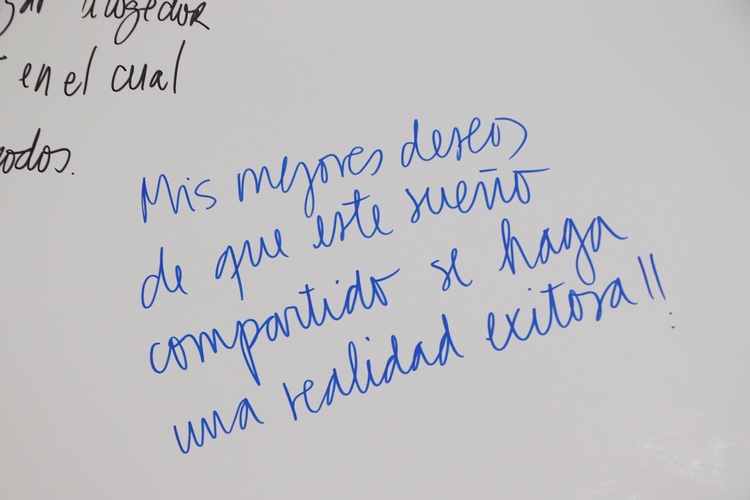 acogedor
en el cual
todos.
Mis mejores deseos
de que este sueño
compartido se haga
una realidad exitosa!!